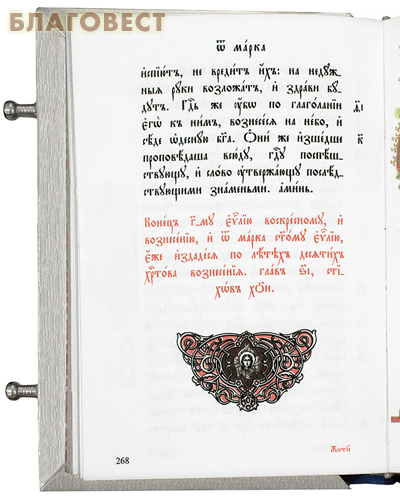 БЛАГОВЕСТ
Ѿ ма́рка
и҆спїю́тъ, не вреди́тъ и҆́хъ: на недꙋ́ж-
ныѧ рꙋ́ки возложа́тъ, и҆ здра́ви бꙋ́-
дꙋтъ. Гдⷭ҇ь же ᲂу҆́бѡ по глаго́ланїи
є҆гѡ̀ къ ни̑мъ, вознесе́сѧ на не́бо, и҆
сѣ́де ѡ҆деснꙋ́ю бг҃а. Ѻ҆ни́ же и҆зше́дше
проповѣ́даша всю́дꙋ, гдⷭ҇ꙋ поспѣ́ш-
ствꙋющꙋ, и҆ сло́во ᲂу҆твержда́ющꙋ послѣ́д-
ствꙋющими зна́меньми. а҆ми́нь.
Коне́цъ г҃-мꙋ є҆ѵⷢ҇лїю воскре́сномꙋ, и҆
вознесе́нїю, и҆ ѿ ма́рка ст҃о́мꙋ є҆ѵⷢ҇лїю,
є҆́же и҆здаде́сѧ по лѣ́тѣхъ десѧти́хъ
хрⷭ҇то́ва вознесе́нїѧ. гла́въ ѕ҃і, сті-
хѡ́въ хѻ҃и.
268